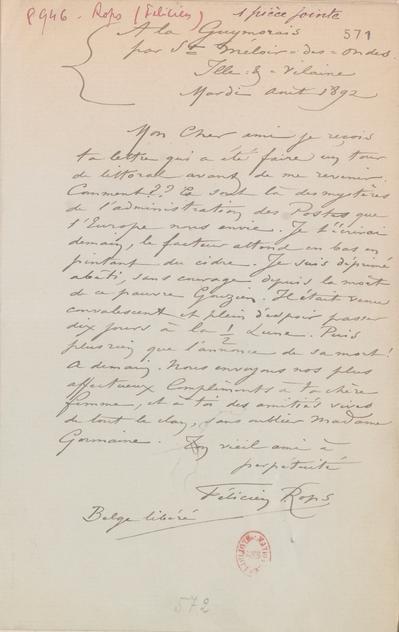 P946. Rops (Félicien) 1 pièce jointe
571
A la Guymorais
par St Méloir-des-Ondes.
Ille-&-Vilaine
Mardi Août 1892
Mon Cher ami je reçois
ta lettre qui a été faire un tour
de littoral avant de me revenir.
Comment?? Ce sont là des mystères
de l'administration des Postes que
l'Europe nous envie. Je t'écrirai
demain, le facteur attend en bas en
pintant du cidre. Je suis déprimé
abêti, sans courage depuis la mort
de ce pauvre Gouzien. Il était venu
convalescent et plein d'espoir passer
dix jours à la ½ Lune. Puis
plus rien que l'annonce de sa mort!
A demain. Nous envoyons nos plus
affectueux Compliments à ta chère
femme, et à toi des amitiés vives
de tout le clan, sans oublier Madame
Germaine. Ton vieil ami à
perpétuité
Félicien Rops
Belge libéré
572